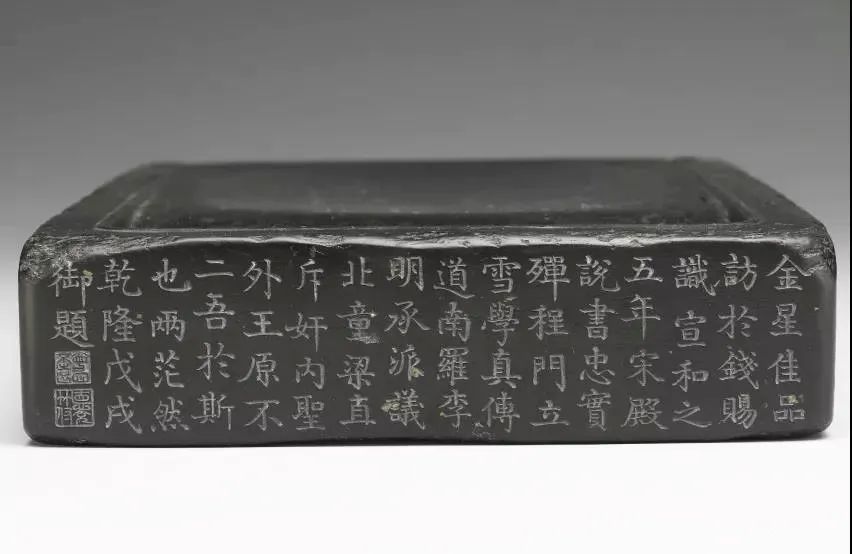 金星佳品
訪於錢賜
識宣和之
五年宋殿
說書忠實
殫程門立
雪學真傳
道南羅李
明承派議
北童梁直
斥奸內聖
外王原不
二吾於斯
也兩茫然
乾隆戊戌
御題